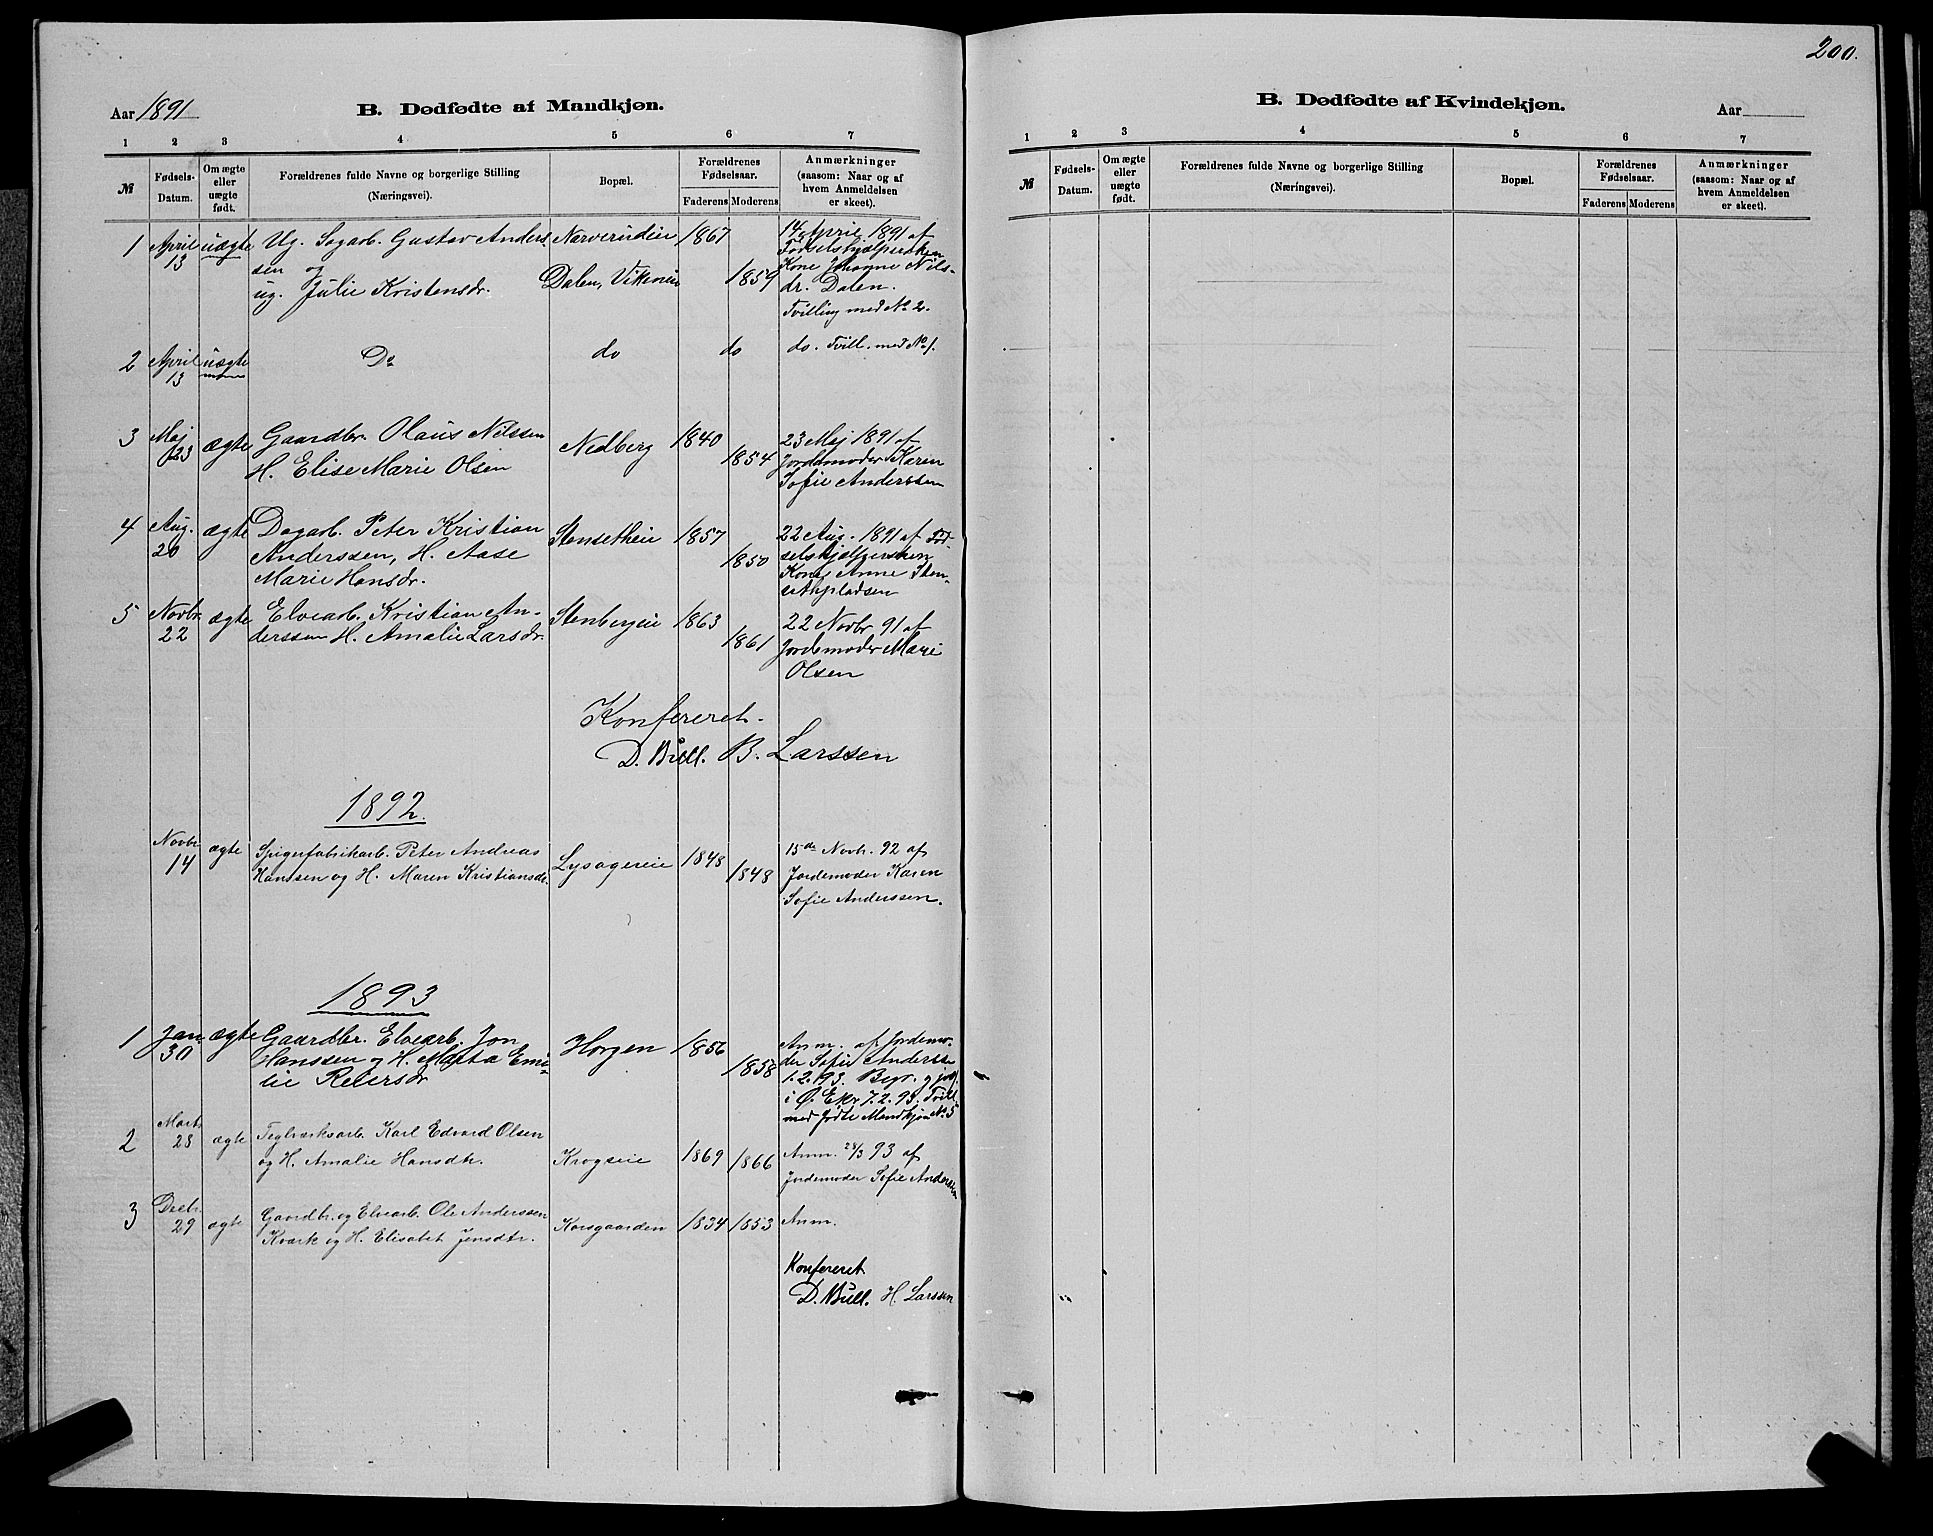 200.
Aar 1891
B. Dødfødte af Mandkjøn.
1 2 3 4 5 6 7
№
Fødsels-
Datum.
Om ægte
eller
uægte
født.
Forældrenes fulde Navne og borgerlige Stilling
(Næringsvei).
Bopæl.
Forældrenes
Fødselsaar.
Faderens Moderens
Anmærkninger
(saasom: Naar og af
hvem Anmeldelsen
er skeet).
1 April 13 uægte
Ug. Sagarb. Gustav Anders
sen og
ug. Julie Kristensdr.
Narverudeie
Dalen, Vikereie
1867
1859
14 April 1891 af
Fødselshjælpersken
Kone Johanne Nils-
dr. Dalen.
Tvilling med No 2.
2 April 13 uægte
Do
do
do
do. Tvill. med No 1.
3 Maj 23 ægte
Gaardbr. Olaus Nilssen
H. Elise Marie Olsen
Nedberg
1840
1854
23 Maj 1891 af
Jordemoder Karen
Sofie Anderssen
4 Aug. 20 ægte
Dagarb. Peter Kristian
Anderssen, H. Aase
Marie Hansdr.
Stenseteie
1857
1850
22 Aug. 1891 af Fød-
selshjælpersken
Kone Anne Sten-
sethpladsen
5 Novbr. 22 ægte
Elvearb. Kristian An-
derssen H. Amalie Larsdr.
Stenbergeie
1863
1861
22 Novbr 91 af
Jordemoder Marie
Olsen
Konfereret.
D. Bull. B. Larssen
1892.
Novbr 14 ægte
Spigerfabrikarb. Peter Andreas
Hanssen og H. Maren Kristiansdr.
Lysagereie
1848
1848
15de Novb. 92 af
Jordemoder Karen
Sofie Anderssen.
1893
1 Jan. 30 ægte
Gaardbr. Elvearb. Jon
Hanssen og H. Marta Emi-
lie Reiersdr.
Horgen
1856
1858
Anm. af Jordemo-
der Sofie Anderssen
1.2.93.
i Ø. Eker 7.2.93. Tvill.
med fødte Mandkjøn No 5
2 Marts 28 ægte
Teglværksarb. Karl Edvard Olsen
og H. Amalie Hansdtr.
Krogseie
1869 1866
Anm. 28/3 93 af
Jordemoder Sofie Anderssen
3 Decbr. 29 ægte
Gaardbr. og Elvearb. Ole Anderssen
Kværk og H. Elisabet Jensdtr.
Korsgaarden
1834 1853
Anm.
Konfereret
D. Bull. H Larssen
B. Dødfødte af Kvindekjøn.
Aar
1 2 3 4 5 6 7
№
Fødsels-
Datum.
Om ægte
eller
uægte
født.
Forældrenes fulde Navne og borgerlige Stilling
(Næringsvei).
Bopæl.
Forældrenes
Fødselsaar.
Faderens Moderens
Anmærkninger
(saasom: Naar og af
hvem Anmeldelsen
er skeet).